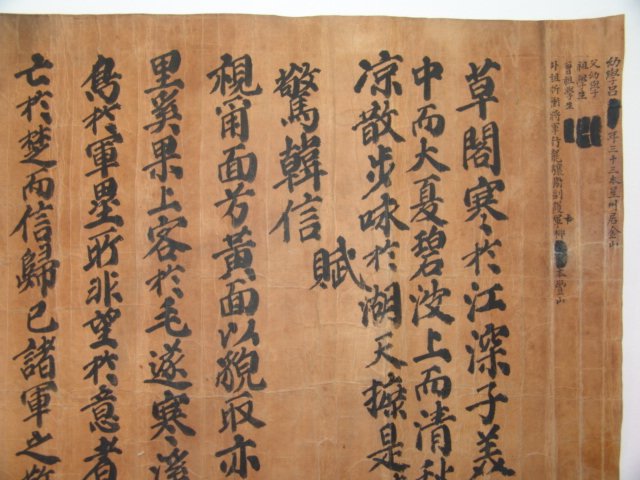 幼學呂 年三十三本星州居金山
父幼學
祖學生
曾祖學生
外祖折衝將軍行龍驤衛副護軍 本豊山
草閣寒於江深子美
中而大夏碧波上而清秋
凉散步咏於湖天據是
賦
驚韓信
視甯面芳黃面以貌取亦
里奚果上客於毛遂寒溪
爲於軍壘所非望於意者
亡於楚而信歸已諸軍之